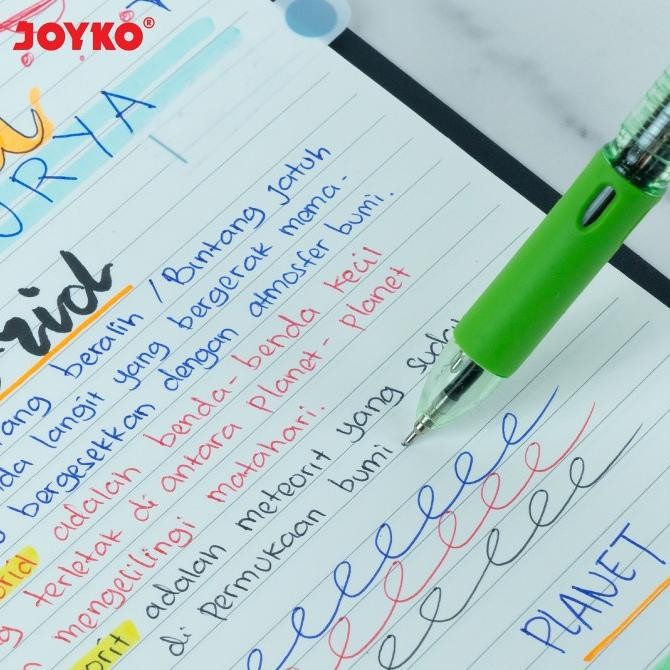 JOYKO®
URYA
beralih / Bintang jatuh
langit yang bergerak mema-
bergesekkan dengan atmosfer bumi.
adalah benda-benda kecil
terletak di antara planet-planet
mengelilingi matahari.
adalah meteorit yang
di permukaan bumi
PLANET